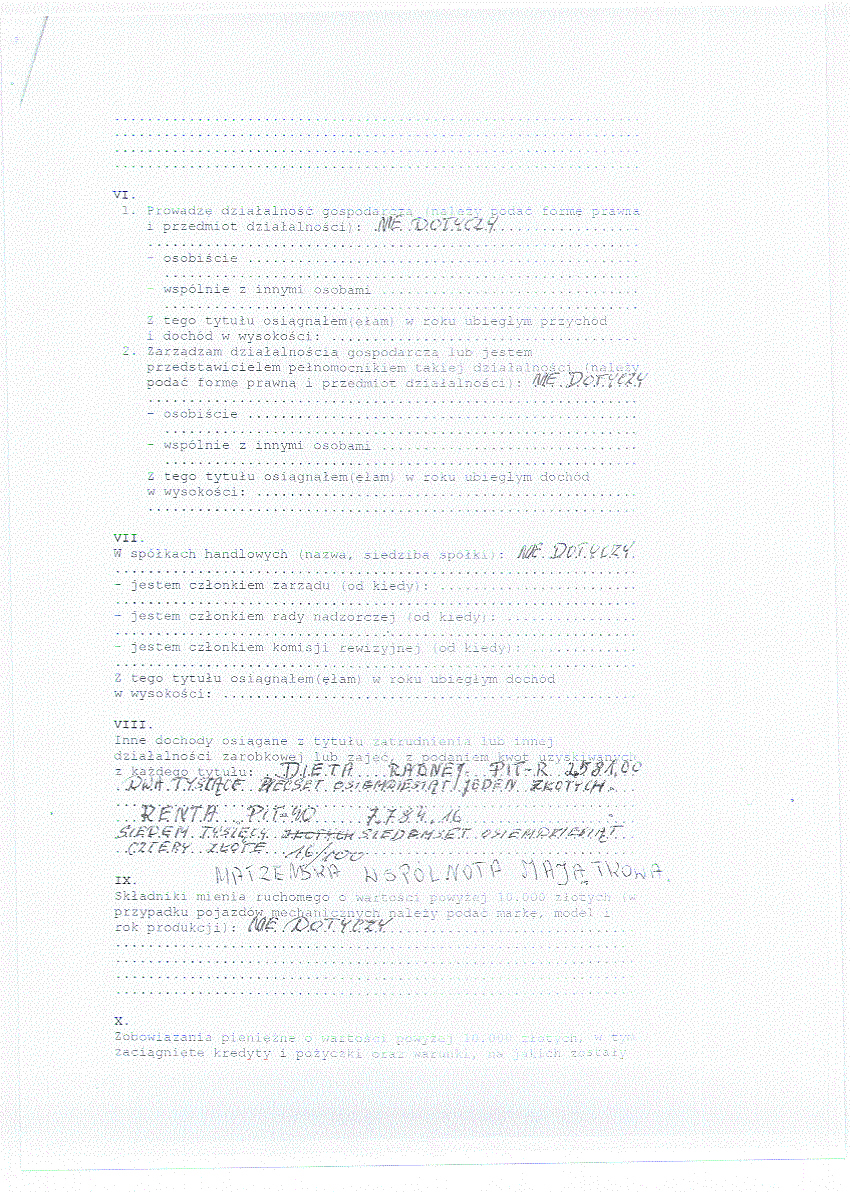 VI.
1. Prowadzę działalność gospodarczą (należy podać formę prawną
i przedmiot działalności): NIE DOTYCZY
- osobiście
- wspólnie z innymi osobami
Z tego tytułu osiągnąłem(ęłam) w roku ubiegłym przychód
i dochód w wysokości:
2. Zarządzam działalnością gospodarczą lub jestem
przedstawicielem pełnomocnikiem takiej działalności (należy
podać formę prawną i przedmiot działalności): NIE DOTYCZY
- osobiście
- wspólnie z innymi osobami
Z tego tytułu osiągnąłem(ęłam) w roku ubiegłym dochód
w wysokości:
VII.
W spółkach handlowych (nazwa, siedziba spółki): NIE DOTYCZY
- jestem członkiem zarządu (od kiedy):
- jestem członkiem rady nadzorczej (od kiedy):
- jestem członkiem komisji rewizyjnej (od kiedy):
Z tego tytułu osiągnąłem(ęłam) w roku ubiegłym dochód
w wysokości:
VIII.
Inne dochody osiągane z tytułu zatrudnienia lub innej
działalności zarobkowej lub zajęć, z podaniem kwot uzyskiwanych
z każdego tytułu: DIETA RADNEJ PIT-R 2581,00
DWA TYSIĄCE PIĘĆSET OSIEMDZIESIĄT JEDEN ZŁOTYCH
RENTA PIT-40 7.784,16
SIEDEM TYSIĘCY ZŁOTYCH SIEDEMSET OSIEMDZIESIĄT
CZTERY ZŁOTE 16/100
MAŁŻEŃSKA WSPÓLNOTA MAJĄTKOWA.
IX.
Składniki mienia ruchomego o wartości powyżej 10.000 złotych (w
przypadku pojazdów mechanicznych należy podać markę, model i
rok produkcji): NIE DOTYCZY
X.
Zobowiązania pieniężne o wartości powyżej 10.000 złotych, w tym
zaciągnięte kredyty i pożyczki oraz warunki, na jakich zostały